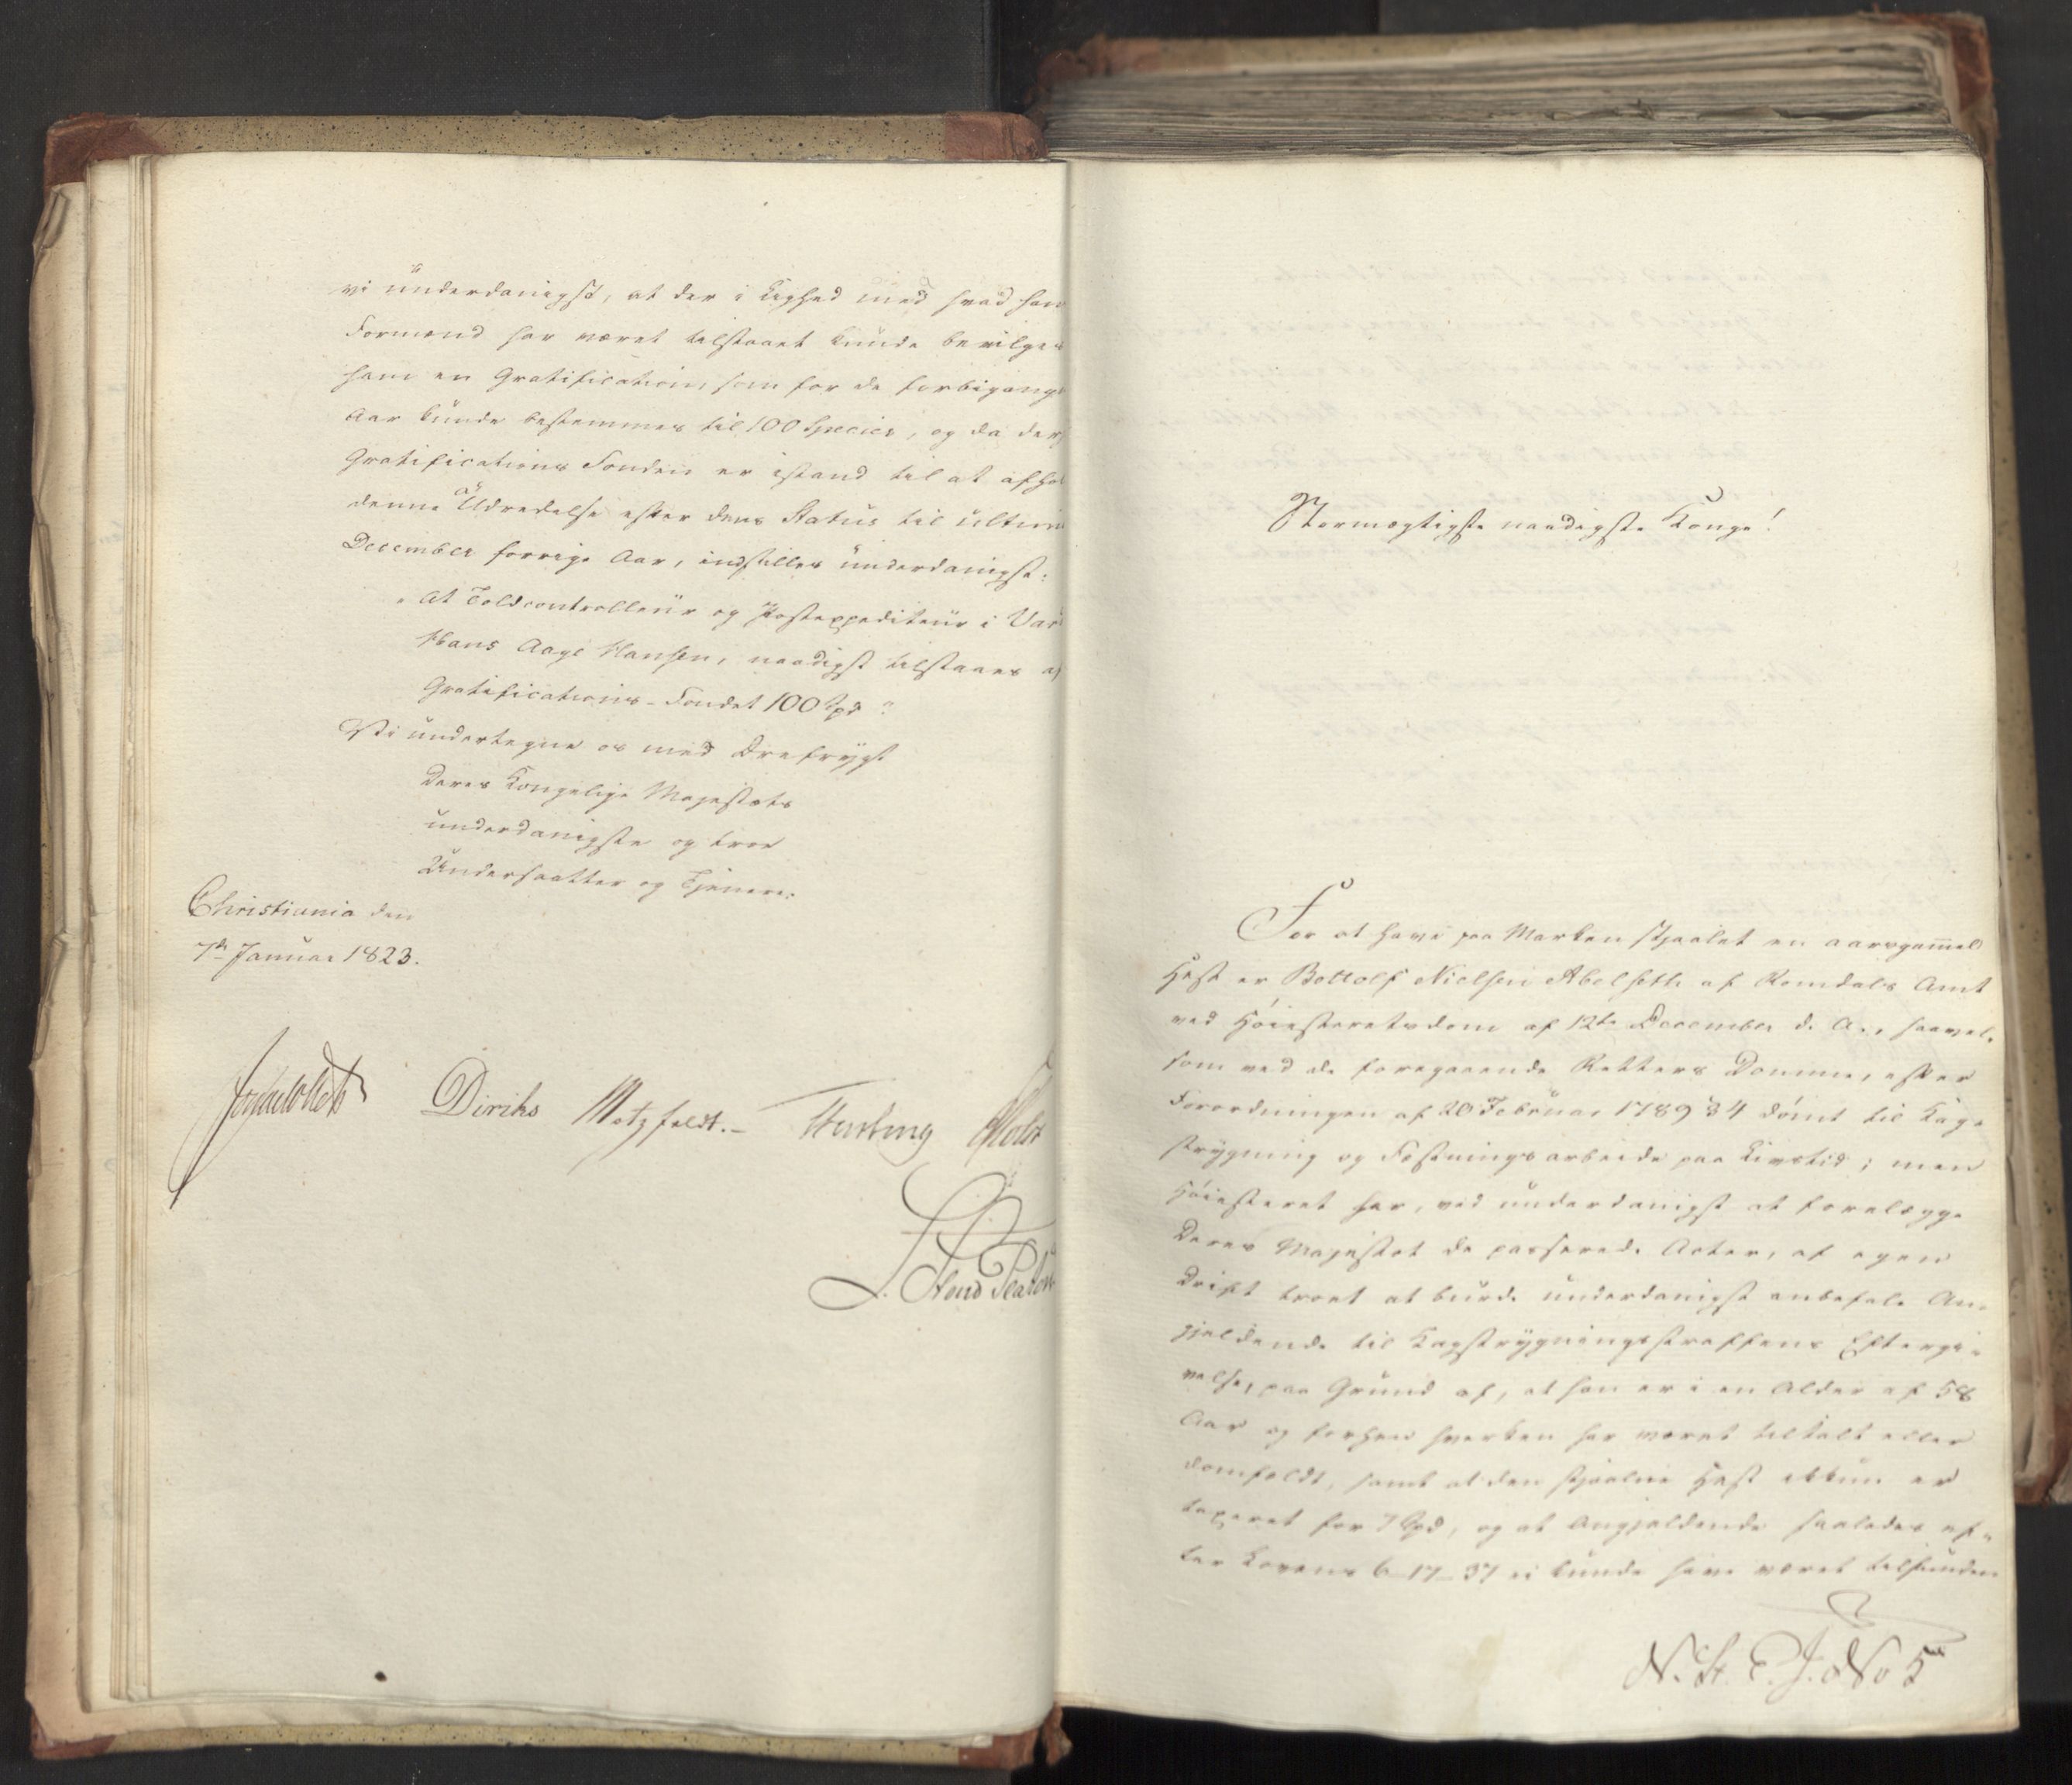 vi underdanigst, at der i Lighed med hvad hans
Formænd har været tilstaaet kunde bevilges
ham en Gratification, som for de forbigangne
Aar kunde bestemmes til 100 Species, og da der
Gratifications Fonden er istand til at afhol
denne Udredelse efter dens Status til ultimo
December forrige Aar, indstilles underdanigst:
"At Toldcontrolleur og Postexpediteur i Var
Hans Aage Hansen, naadigst tilstaaes af
Gratifications-Fondet 100 Spd"
Vi undertegne os med Ærefrygt
Deres Kongelige Majestæts
underdanigste og troe
Undersaatter og Tjenere.
Christiania den
7de Januar 1823.
Diriks Motzfeldt. Holst
Stormægtigste naadigste Konge!
For at have paa Marken stjaalet en aarsgammel
Hest er Bottolf Nielsen Abelseth af Romdals Amt
ved Høiesteretsdom af 12te December d. A., saavel-
som ved de foregaaende Retters Domme, efter
Forordningen af 20 Februar 1789 § 4 dømt til Kag-
strygning og Fæstningsarbeide paa Livstid; men
Høiesteret har, ved underdanigst at forelægge
Deres Majestæt de passerede Acter, af egen
Drift troet at burde underdanigst anbefale An-
gjeldende til Kagstrygningsstraffens Eftergi-
velse, paa Grund af, at han er i en Alder af 58
Aar og forhen hverken har været tiltalt eller
domfældt, samt at den stjaalne Hest ikkun er
taxeret for 7 Spd, og at Angjeldende saaledes ef-
ter Lovens 6-17-37 ei kunde have været tilfunden
N. St. E. J. No 5